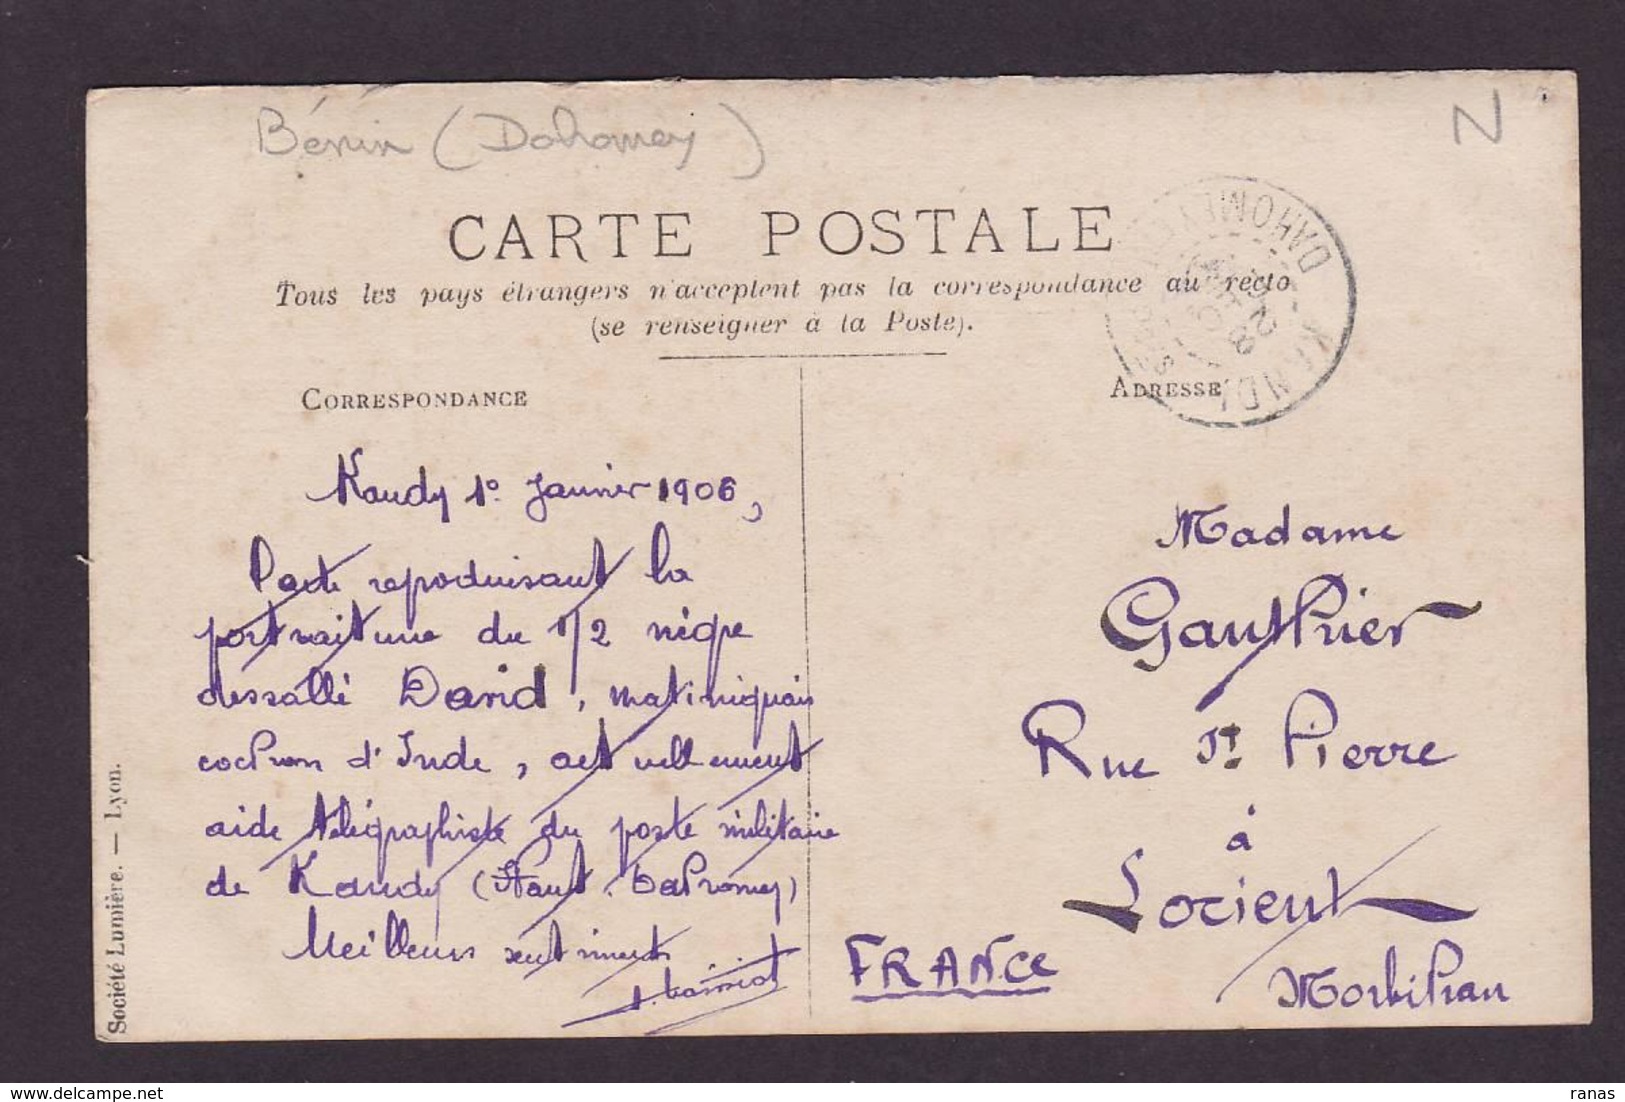 Bénin (Dahomey)
N
CARTE POSTALE
Tous les pays étrangers n'acceptent pas la correspondance au recto
(se renseigner à la Poste).
DAHOMEY
KANDI
CORRESPONDANCE
ADRESSE
Kandy 1º Janvier 1906,
Carte reproduisant la
portraiture du 1/2 nègre
dessallé David, martiniquais
cochon d'Inde, actuellement
aide télégraphiste du poste militaire
de Kandy (Haut-Dahomey)
Meilleurs sentiments
Madame
Gauthier
Rue St Pierre
à
Lorient
Morbihan
FRANCE
Société Lumière. — Lyon.
ranas